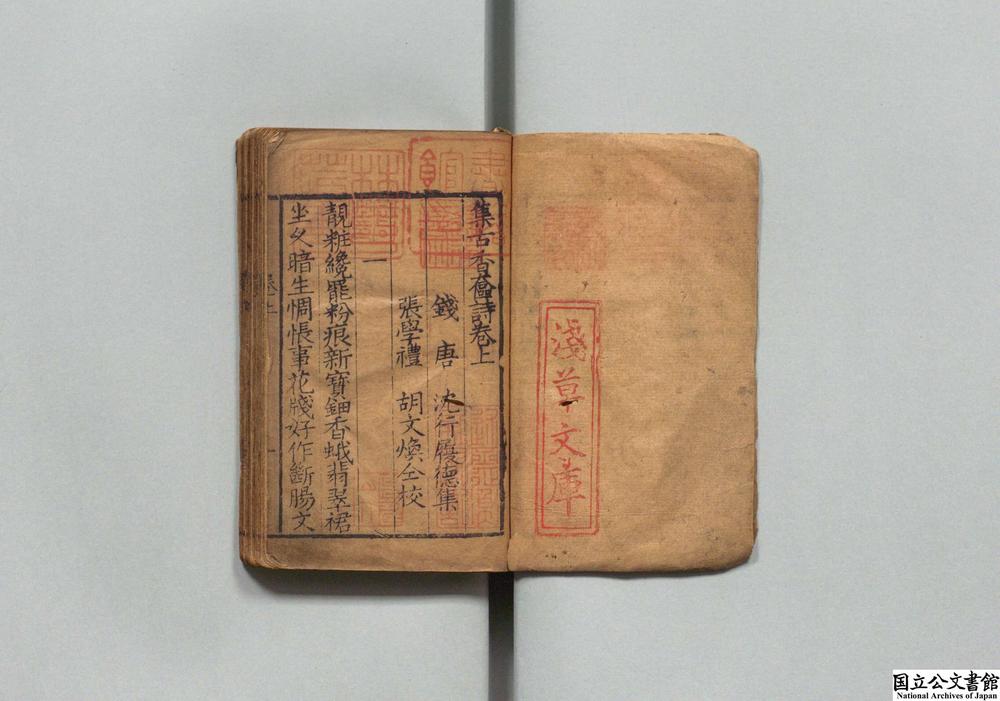 淺草文庫
集古香奩詩卷上
錢唐 沈行履德集
張學禮 胡文煥仝校
一
靚粧纔罷粉痕新寶鈿香蛾翡翠裙
坐久暗生惆悵事花牋好作斷腸文
国立公文書館
National Archives of Japan